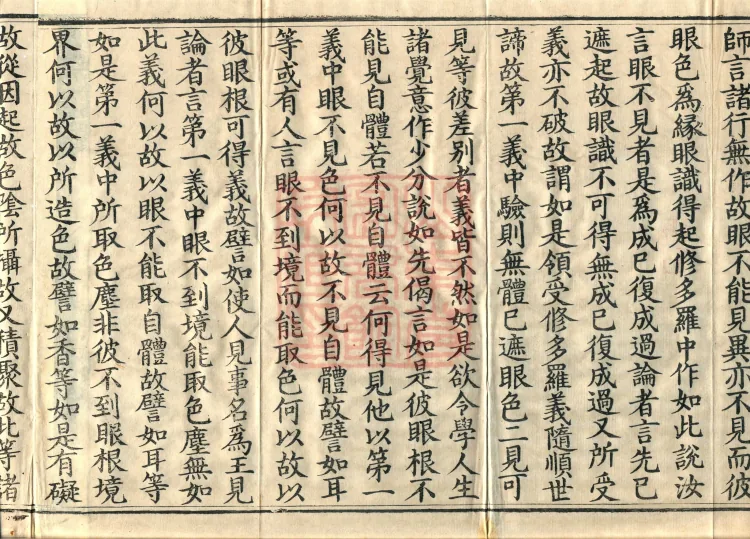 師言諸行無作故眼不能見異亦不見而彼
眼色爲緣眼識得起修多羅中作如此說汝
言眼不見者是爲成已復成過論者言先已
遮起故眼識不可得無成已復成過又所受
義亦不破故謂如是領受修多羅義隨順世
諦故第一義中驗則無體已遮眼色二見可
見等彼差別者義皆不然如是欲令學人生
諸覺意作少分說如先偈言如是彼眼根不
能見自體若不見自體云何得見他以第一
義中眼不見色何以故不見自體故譬如耳
等或有人言眼不到境而能取色何以故以
彼眼根可得義故譬如使人見事名爲王見
論者言第一義中眼不到境能取色塵無如
此義何以故以眼不能取自體故譬如耳等
如是第一義中所取色塵非彼不到眼根境
界何以故以所造色故譬如香等如是有礙
故從因起故色陰所攝故又積聚故此等諸